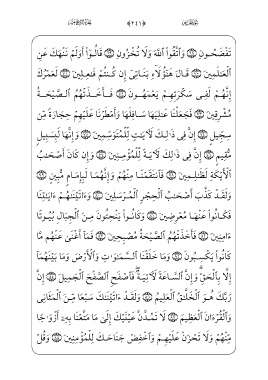 تَفْضَحُونِ ۝ وَٱتَّقُوا۟ ٱللَّهَ وَلَا تُخْزُونِ ۝ قَالُوٓا۟ أَوَلَمْ نَنْهَكَ عَنِ
ٱلْعَـٰلَمِينَ ۝ قَالَ هَـٰٓؤُلَآءِ بَنَاتِىٓ إِن كُنتُمْ فَـٰعِلِينَ ۝ لَعَمْرُكَ
إِنَّهُمْ لَفِى سَكْرَتِهِمْ يَعْمَهُونَ ۝ فَأَخَذَتْهُمُ ٱلصَّيْحَةُ
مُشْرِقِينَ ۝ فَجَعَلْنَا عَـٰلِيَهَا سَافِلَهَا وَأَمْطَرْنَا عَلَيْهِمْ حِجَارَةً مِّن
سِجِّيلٍ ۝ إِنَّ فِى ذَٰلِكَ لَـَٔايَـٰتٍ لِّلْمُتَوَسِّمِينَ ۝ وَإِنَّهَا لَبِسَبِيلٍ
مُّقِيمٍ ۝ إِنَّ فِى ذَٰلِكَ لَـَٔايَةً لِّلْمُؤْمِنِينَ ۝ وَإِن كَانَ أَصْحَـٰبُ
ٱلْأَيْكَةِ لَظَـٰلِمِينَ ۝ فَٱنتَقَمْنَا مِنْهُمْ وَإِنَّهُمَا لَبِإِمَامٍ مُّبِينٍ ۝
وَلَقَدْ كَذَّبَ أَصْحَـٰبُ ٱلْحِجْرِ ٱلْمُرْسَلِينَ ۝ وَءَاتَيْنَـٰهُمْ ءَايَـٰتِنَا
فَكَانُوا۟ عَنْهَا مُعْرِضِينَ ۝ وَكَانُوا۟ يَنْحِتُونَ مِنَ ٱلْجِبَالِ بُيُوتًا
ءَامِنِينَ ۝ فَأَخَذَتْهُمُ ٱلصَّيْحَةُ مُصْبِحِينَ ۝ فَمَآ أَغْنَىٰ عَنْهُم مَّا
كَانُوا۟ يَكْسِبُونَ ۝ وَمَا خَلَقْنَا ٱلسَّمَـٰوَٰتِ وَٱلْأَرْضَ وَمَا بَيْنَهُمَآ
إِلَّا بِٱلْحَقِّ ۗ وَإِنَّ ٱلسَّاعَةَ لَـَٔاتِيَةٌ ۖ فَٱصْفَحِ ٱلصَّفْحَ ٱلْجَمِيلَ ۝ إِنَّ
رَبَّكَ هُوَ ٱلْخَلَّـٰقُ ٱلْعَلِيمُ ۝ وَلَقَدْ ءَاتَيْنَـٰكَ سَبْعًا مِّنَ ٱلْمَثَانِى
وَٱلْقُرْءَانَ ٱلْعَظِيمَ ۝ لَا تَمُدَّنَّ عَيْنَيْكَ إِلَىٰ مَا مَتَّعْنَا بِهِۦٓ أَزْوَٰجًا
مِّنْهُمْ وَلَا تَحْزَنْ عَلَيْهِمْ وَٱخْفِضْ جَنَاحَكَ لِلْمُؤْمِنِينَ ۝ وَقُلْ